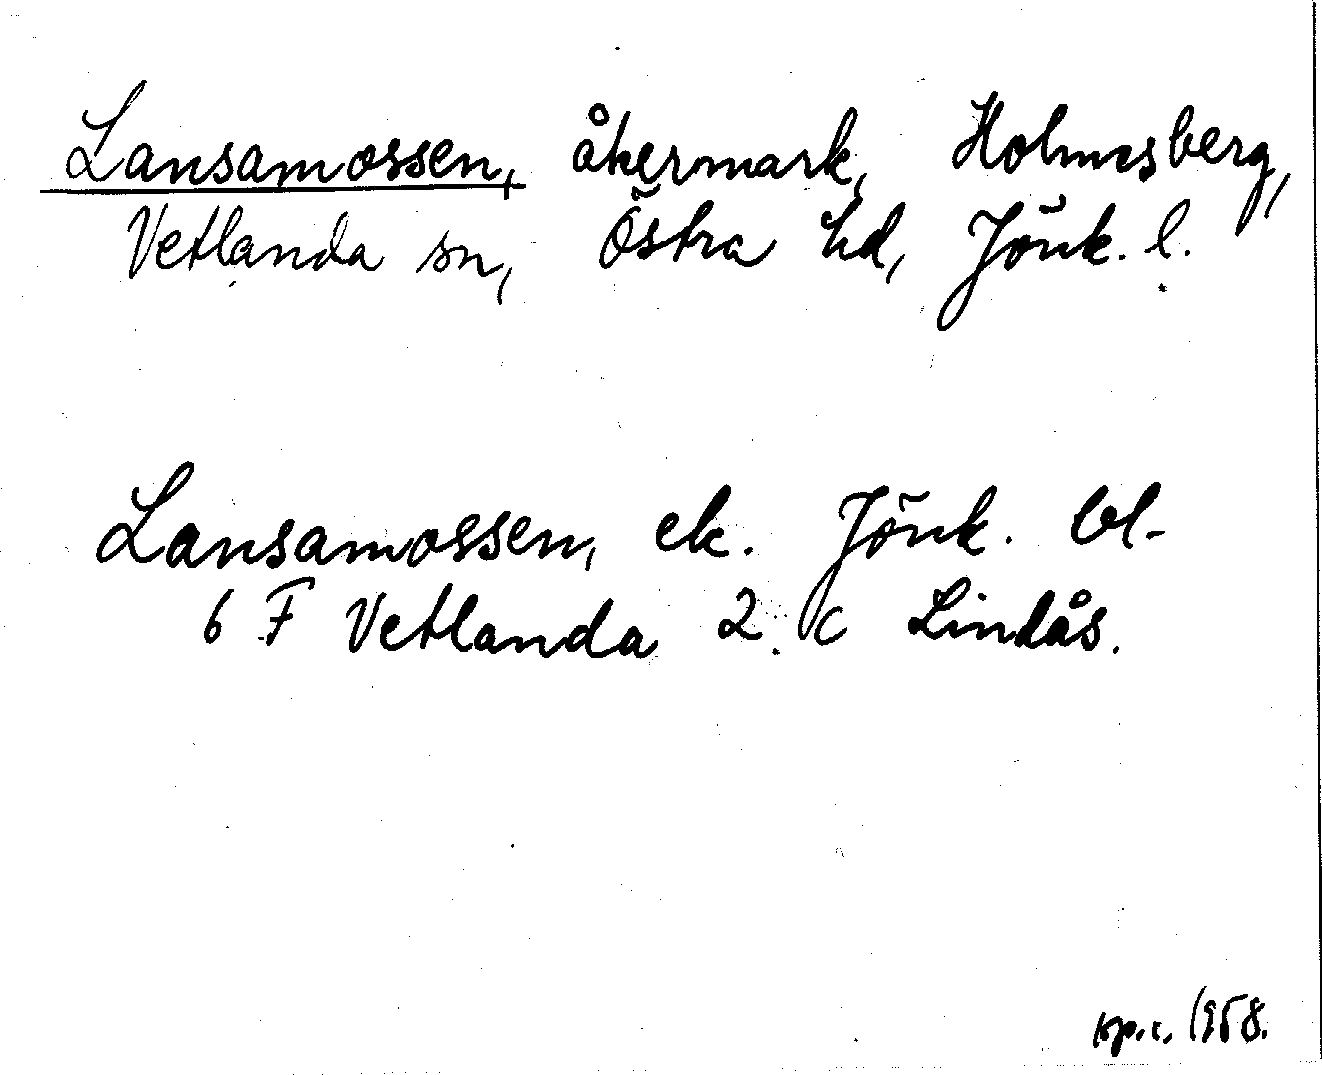 Lansamossen, åkermark, Holmsberg,
Vetlanda sn, Östra hd, Jönk. l.
Lansamossen, ek. Jönk. bl.
6 F Vetlanda 2 c Lindås.
1958.